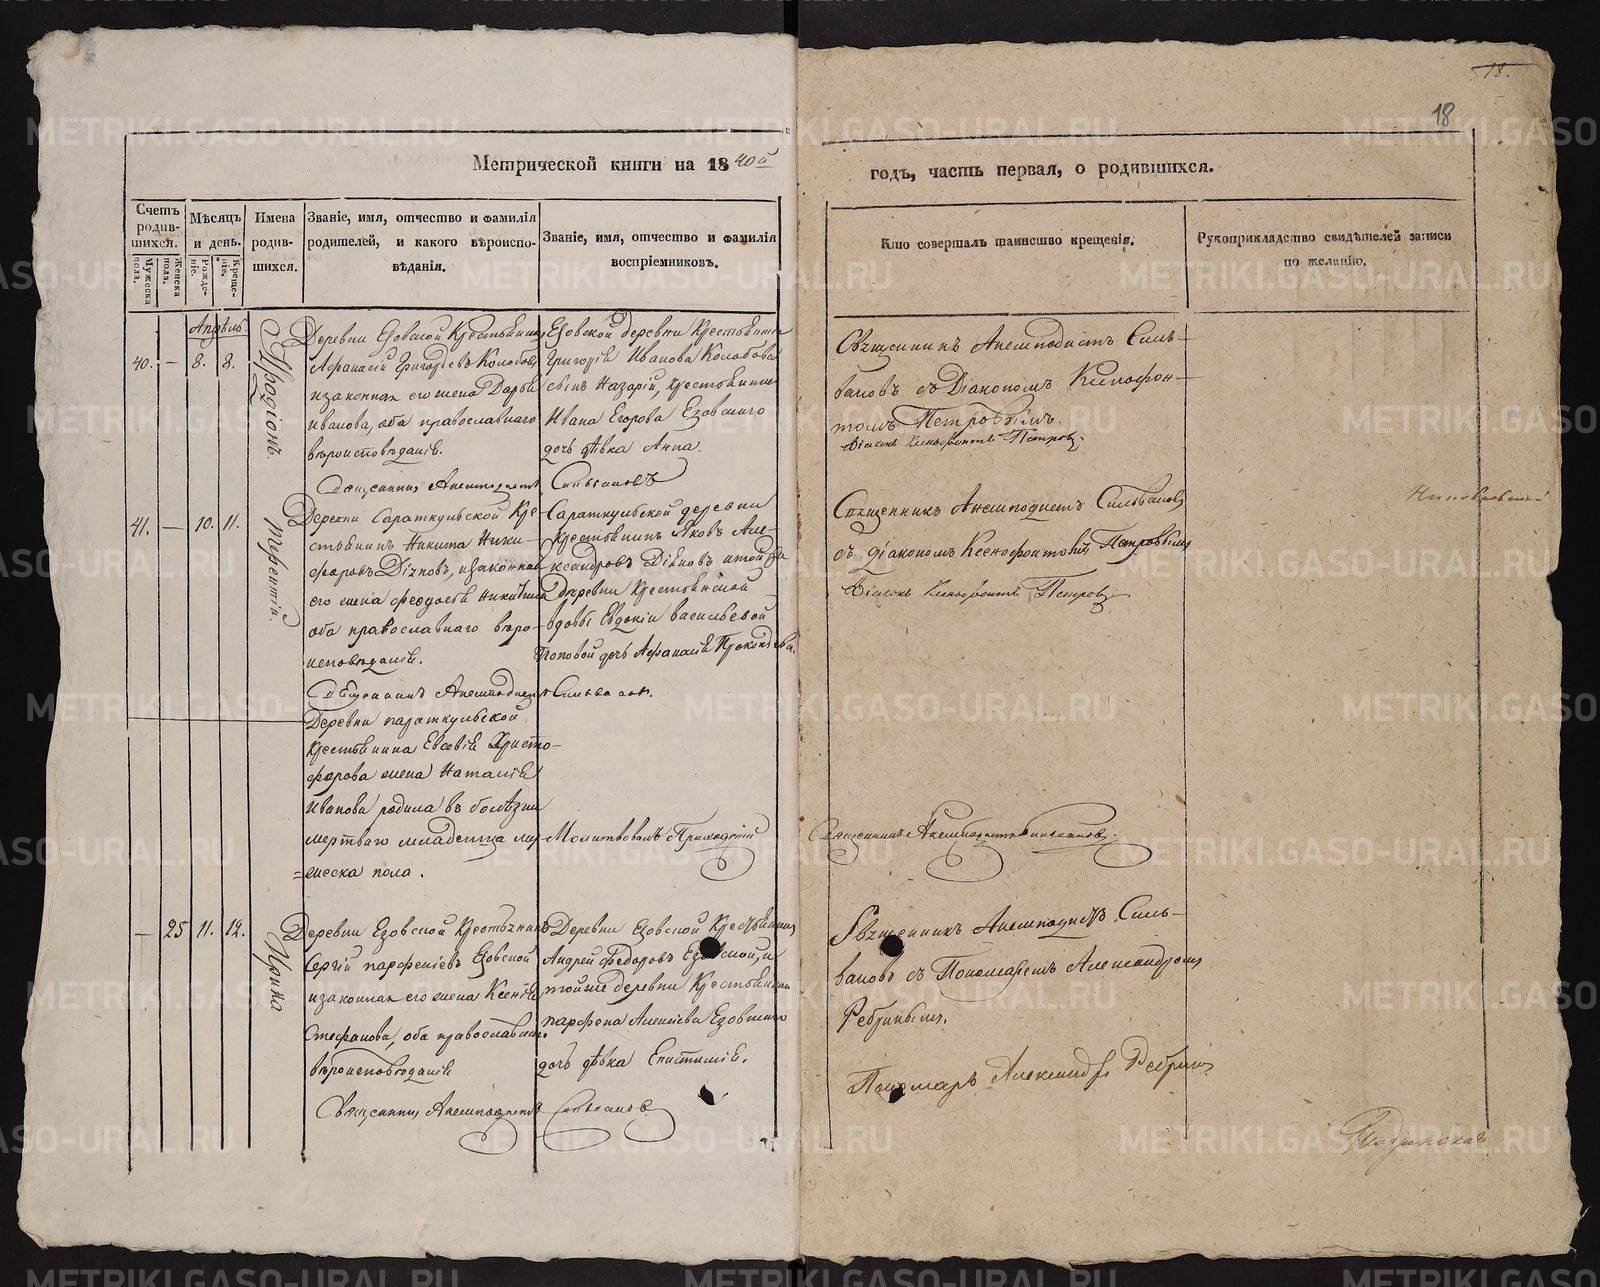 18.
18
Метрической книги на 1840й
годъ, часть первая, о родившихся.
Счетъ родив-шихся.
Мужеска пола.
Женска пола.
Мѣсяцъ и день.
Рожде-ніе.
Креще-ніе.
Имена родив-шихся.
Званіе, имя, отчество и фамилія
родителей, и какого вѣроиспо-
вѣданія.
Званіе, имя, отчество и фамилія
воспріемниковъ.
Кто совершалъ таинство крещенія.
Рукоприкладство свидѣтелей записи
по желанію.
Апрѣль.
40. — 8. 8.
Иродіонъ.
Деревни Езовской Крестьянинъ
Афанасій Григорьевъ Колобовъ
и законная его жена Дарья
Иванова, оба православнаго
вѣроисповѣданія.
Священникъ Анемподистъ Сильвановъ
Езовской деревни Крестьянина
Григорія Иванова Колобова
сынъ Назарій, крестьянина
Ивана Егорова Езовскаго
дочь дѣвка Анна.
Священникъ Анемподистъ Силь-
вановъ съ Діакономъ Ксенофон-
томъ Петровымъ.
Діаконъ Ксенофонтъ Петровъ.
41. — 10. 11.
Терентій.
Деревни Сараткульской Кре-
стьянинъ Никита Ники-
форовъ, и законная
его жена Феодосья Никитина
оба православнаго вѣро-
исповѣданія.
Священникъ Анемподистъ Сильвановъ.
Сараткульской деревни
Крестьянинъ Яковъ Але-
ксандровъ и той же
деревни Крестьянской
вдовы Евдокіи Васильевой
Поповой дочь Афанасія Прокопьева.
Священникъ Анемподистъ Сильвановъ
съ діакономъ Ксенофонтомъ Петровымъ
Діаконъ Ксенофонтъ Петровъ
Деревни
Крестьянина Евсевія Христо-
форова жена Наталія
Иванова родила въ болѣзни
мертваго младенца му-
=жеска пола.
Молитвовалъ Приходскій
Священникъ Анемподистъ Сильвановъ.
— 25 11. 12.
Ирина
Деревни Езовской Крестьянинъ
Сергій Парфеніевъ Езовской
и законная его жена Ксенія
Стефанова, оба православнаго
вѣроисповѣданія
Священникъ Анемподистъ Сильвановъ
Деревни Езовской Крестьянинъ
Андрей Федоровъ Езовской, и
той же деревни Крестьянина
Парфена Алексіева Езовскаго
дочь дѣвка Епистимія.
Священникъ Анемподистъ Силь-
вановъ съ Пономаремъ Александромъ
Ребринымъ.
Пономарь Александръ Ребринъ
METRIKI.GASO-URAL.RU